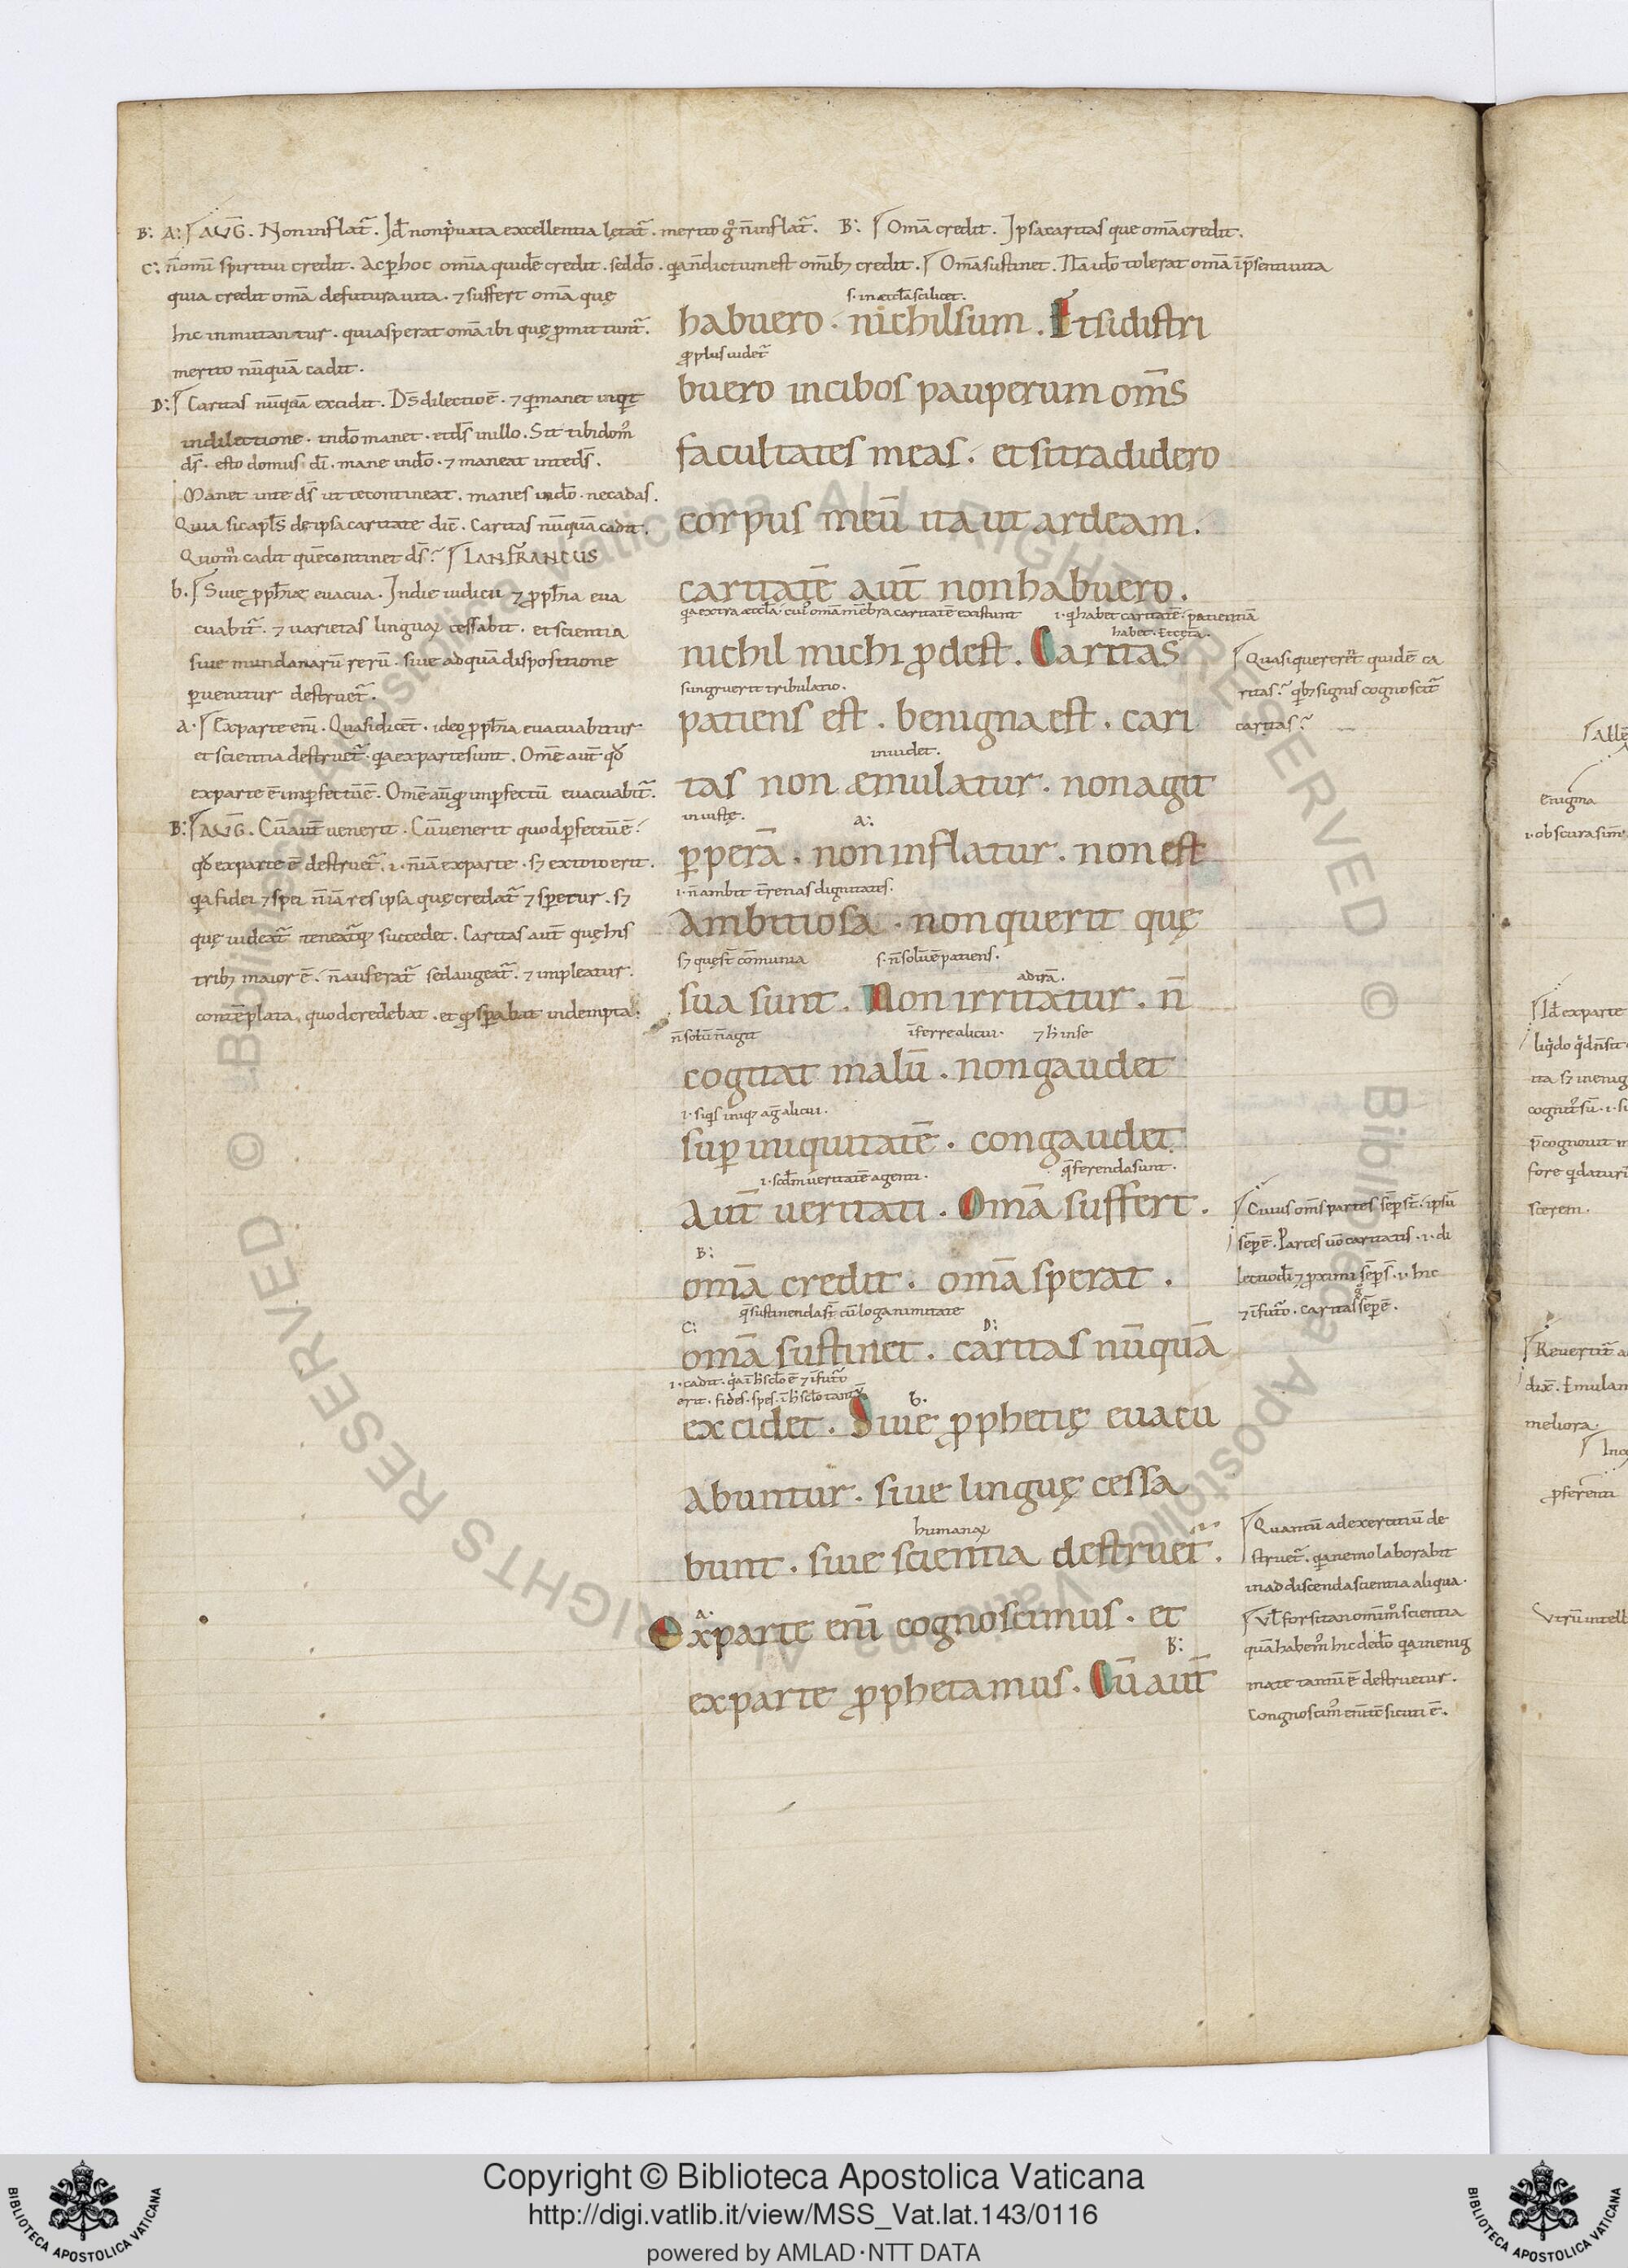 B: A: AUG̅. Non inflat᷑. Id̅ non p᷑uata excellentia lętat᷑. merito gͦ n̅ inflat᷑. B: Om̅a credit. Ipsa caritas que om̅a credit.
C: n̅ om̅i spiritui credit. Ac ꝑ hoc om̅ia quidē credit. sed do̅. q̅a n̅ dictum est om̅ibꝫ credit. Om̅a sustinet. Na̅ ido̅ tolerat om̅a i̅ p̅senti uita
quia credit om̅a de futura uita. ⁊ suffert om̅a quę
hic inmittantur. quia sperat om̅a ibi quę ꝓmittunt᷑.
merito nūquā cadit.
D: Caritas nūquā excidit. Ds̅ dilectio ē. ⁊ q̅ manet inquit
in dilectione. in do̅ manet. et ds̅ in illo. Sit tibi dom᷒
ds̅. esto domus di̅. mane in do̅. ⁊ maneat in te ds̅.
Manet in te ds̅ ut te contineat. manes in do̅. ne cadas.
Quia sic apl̅s de ipsa caritate dic̅. Caritas nūquā cadit.
Quom᷒ cadit quē continet ds̅? LANFRANCUS
b. Siue ꝓph̅iae euacua. In die iudicii ⁊ ꝓph̅ia eua
cuabit᷑. ⁊ uarietas linguaꝝ cessabit. et scientia
siue mundanarū rerū. siue ad quā dispositione
ꝑuenitur destruet᷑.
a. Ex parte eni̅. Quasi dicet̅. ideo ꝓph̅ia euacuabitur
et scientia destruet᷑. q̅a ex parte sunt. Om̅e aut̅ qd̅
ex parte ē inꝑfectū ē. Om̅e aut̅ inꝑfectū euacuabit᷑.
B: AUG̅. Cū aut̅ uenerit. Cū uenerit quod ꝑfectū ē.
qd̅ ex parte ē destruet᷑. i. n̅ iā ex parte. sꝫ ex toto erit.
q̅a fidei ⁊ spei n̅ iā res ipsa quę credat᷑ ⁊ speretur. sꝫ
quę uideat᷑ teneat᷑qꝫ succedet. Caritas aut̅ quę his
tribꝫ maior ē. n̅ auferat᷑ sed augeat᷑. ⁊ impleatur.
contēplata quod credebat. et qd̅ sꝑabat indempta.
s. in aeccl̅a scilicet.
habuero. nichil sum. Et si distri
ꝓplus uidet᷑
buero in cibos pauperum om̅s
facultates meas. et si tradidero
corpus meū ita ut ardeam.
caritatē aut̅ non habuero.
q̅a extra aeccl̅a. cui᷒ om̅a mēbra caritatē existunt i. q̅ habet caritatē. patientiā
habet. Et cęta.
nichil michi ꝓdest. Caritas
si ingruerit tribulatio.
patiens est. benigna est. cari
inuidet.
tas non aemulatur. non agit
iniuste. a:
ꝑperā. non inflatur. non est
i. n̅ ambit t̅renas dignitates.
Ambitiosa. non querit quę
sꝫ quę st̅ cōmunia s. n̅ solū ē patiens. ad irā.
sua sunt. Non irritatur. n̅
n̅ solū n̅ agit i̅ferre alicui. ⁊ h̅ in se
cogitat malū. non gaudet
i. siq̅s iniqꝫ ag̅ alicui.
suꝑ iniquitatē. congaudet
i. scdm̅ ueritatē agenti. q̅ ferenda sunt.
Aut̅ ueritati. Om̅a suffert.
B:
om̅a credit. om̅a sperat.
C: q̅ sustinenda st̅ cū loganimitate D:
om̅a sustinet. caritas nūquā
i. cadit. q̅a i̅ h̅ sclo̅ ē ⁊ i̅ futur̅o
erit. fides. spes. i̅ h̅ sclo̅ tantū b.
excidet. Siue ꝓphetię euacu
Abuntur. siue linguę cessa
humanaꝝ
bunt. siue scientia destruet᷑.
a.
Ex parte eni̅ cognoscimus. et
B:
ex parte ꝓphetamus. Cū aut̅
Quasi quereret᷑ quidē ca
ritas? q̅bꝫ signis cognoscit᷑
caritas?
Cuius om̅s partes sēꝑ st̅. ipsū
sēꝑ ē. Partes uo̅ caritatis. i. di
lectio di̅ ⁊ ꝓximi sēꝑ s̅. i. hic
⁊ i̅ futur̅o. caritas gͦ sēꝑ ē.
Quantū ad exercitiū de
struet᷑. q̅a nemo laborabit
in addiscenda scientia aliqua.
Vl̅ forsitan om̅im᷒ scientia
quā habem᷒ hic de do̅ q̅a in enig
mate tantū ē destruetur.
Congnoscim᷒ eni̅ tē sicuti ē.
enigma
i. obscura sim̅
Id̅ ex parte
pcognouit
scerem.
Reuertit᷑ a
dix̅. Emulam
meliora.
ꝓferenti
Utrū intell
Copyright © Biblioteca Apostolica Vaticana
http://digi.vatlib.it/view/MSS_Vat.lat.143/0116
powered by AMLAD·NTT DATA
BIBLIOTECA APOSTOLICA VATICANA
BIBLIOTECA APOSTOLICA VATICANA
© Biblioteca Apostolica Vaticana ALL RIGHTS RESERVED
© Biblioteca Apostolica Vaticana ALL RIGHTS RESERVED